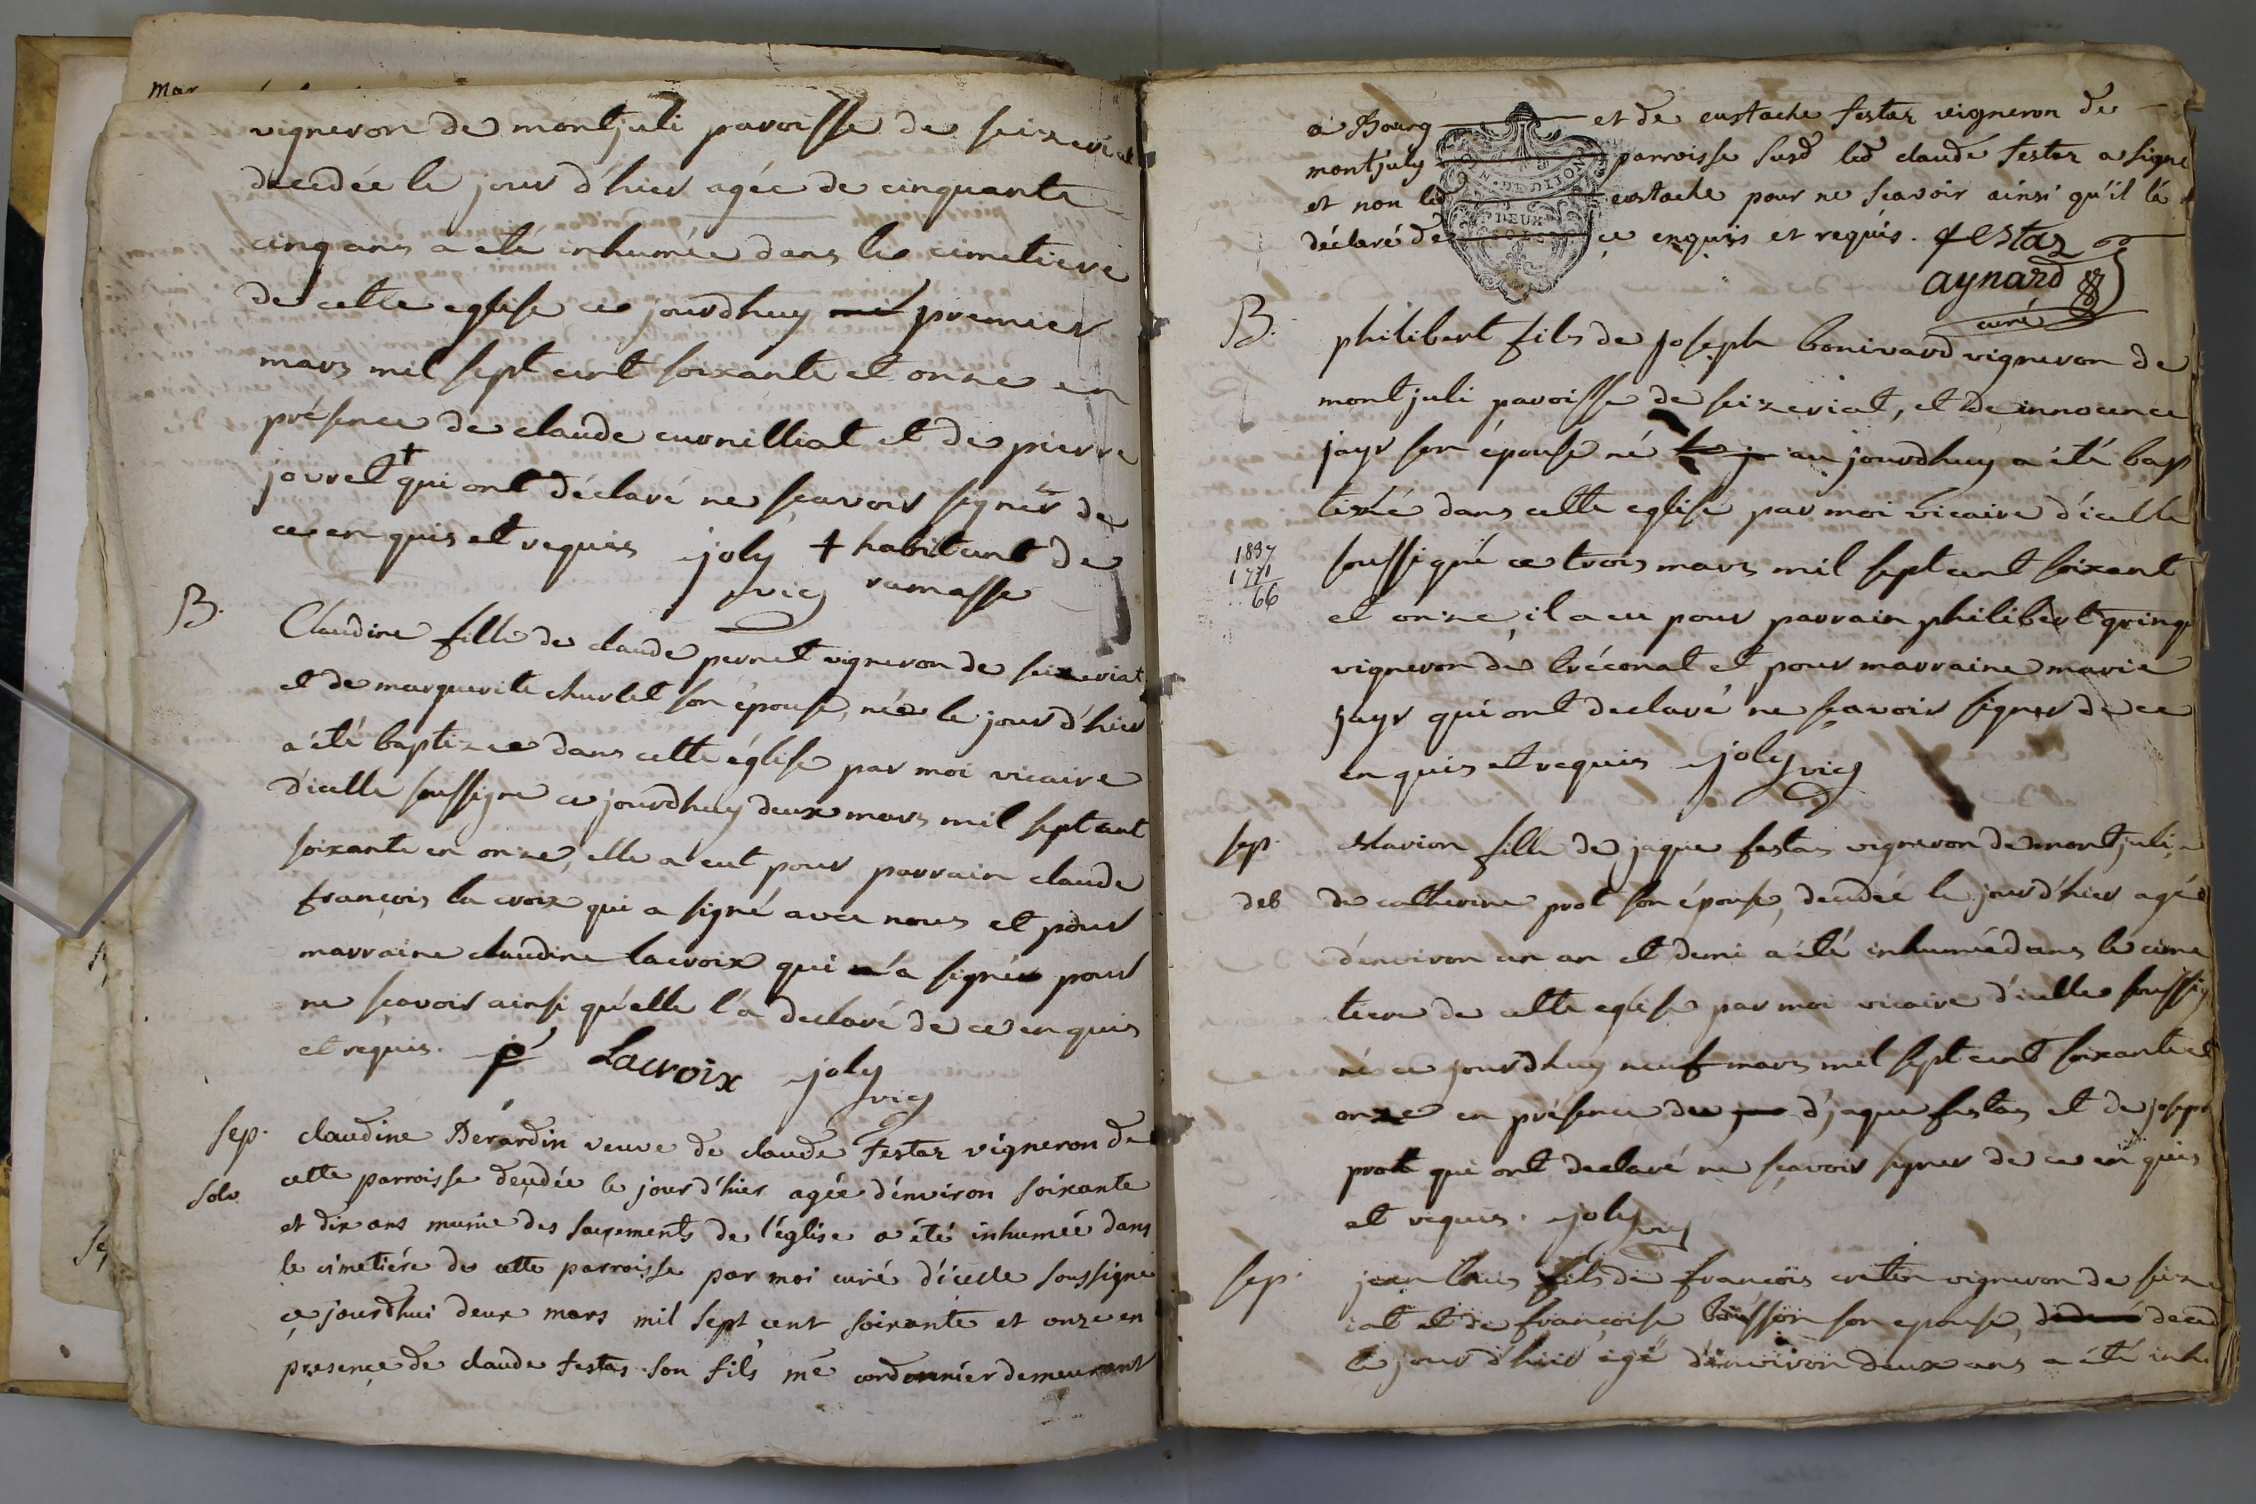 Mar
vigneron de montjuli paroisse de seizeriat
decedée le jour d'hier agée de cinquante
cinq ans a eté inhumée dans le cimetiere
de cette eglise ce jourdhuy premier
mars mil sept cent soixante et onze en
présence de claude curnilliat et de pierre
jovret + qui ont déclaré ne sçavoir signer de
ce enquis et requis joly + habitant de
vic ramasse
B. Claudine fille de claude pernet vigneron de seizeriat
et de marguerite churlet son épouse, née le jour d'hier
a été baptizee dans cette église par moi vicaire
d'icelle soussigne ce jourdhuy deux mars mil sept cent
soixante en onze, elle a eut pour parrain claude
françois la croix qui a signé avec nous et pour
marraine claudine lacroix qui n'a signée pour
ne sçavoir ainsi qu'elle l'a declaré de ce enquis
et requis. Lacroix joly
vic
sep. claudine Bérardin veuve de claude festaz vigneron de
solv cette parroisse decédée le jour d'hier agée d'environ soixante
et dix ans munie des sacrements de l'église a été inhumée dans
le cimetiére de cette parroisse par moi curé d'icelle soussigné
ce jourdhui deux mars mil sept cent soixante et onze en
presence de claude festas son fils mé cordonnier demeurant
a Bourg et de eustache festaz vigneron de
montjuly parroisse susd led claude festaz a signé
et non led eustache pour ne sçavoir ainsi qu'il l'a
déclaré de ce enquis et requis. festaz
GEN. DE DIJON
DEUX
SOLS
aynard
curé
B. philibert fils de joseph bonivard vigneron de
montjuli paroisse de seizeriat, et de innocence
jayr son épouse né aujourdhuy a été bap
tizé dans cette eglise par moi vicaire d'icelle
1837
1771
66
soussigné ce trois mars mil sept cent soixant
et onze, il a eu pour parrain philibert gringe
vigneron de tréconat et pour marraine marie
jayr qui ont declaré ne sçavoir signer de ce
enquis et requis joly vic
sep. Marion fille de jaque festas vigneron de montjuli,
deb de catherine prot son épouse, decedée le jour d'hier agée
d'environ un an et demi a été inhumée dans le cime
tiere de cette eglise par moi vicaire d'icelle soussig
né ce jourdhuy neuf mars mil sept cent soixante et
onze en présence de d'jaque festas et de joseph
prot qui ont declaré ne sçavoir signer de ce enquis
et requis. joly vic
sep. jean louis fils de françois cretin vigneron de seize
iat et de françoise buisson son epouse, deced
le jour d'hier agé d'environ deux ans a été inh